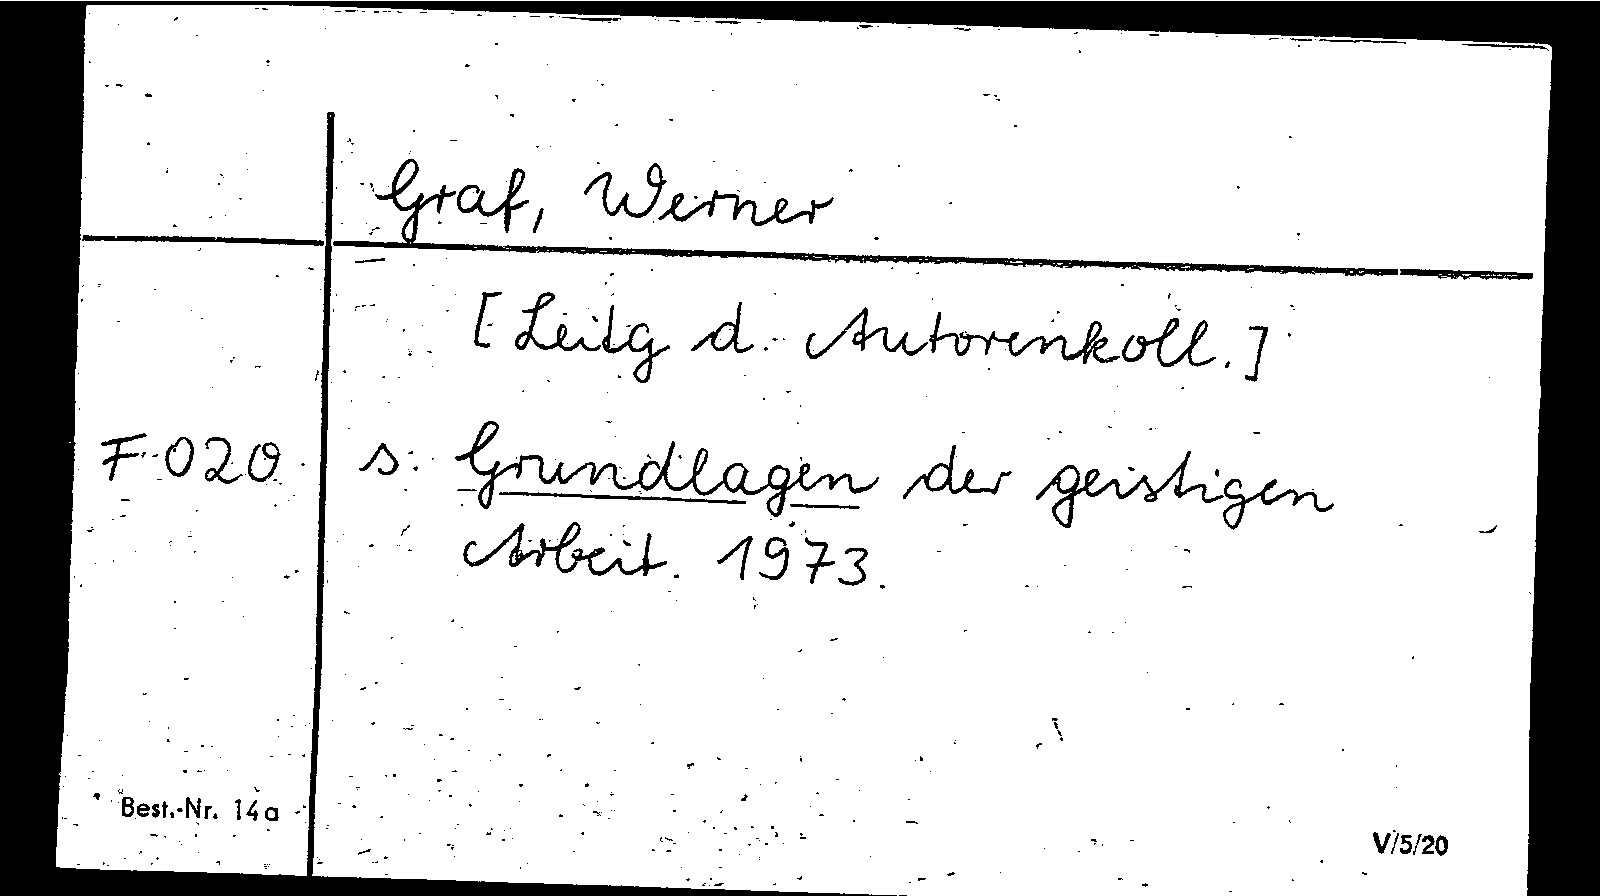 Graf, Werner
[Leitg d. Autorenkoll.]
F 020 s. Grundlagen der geistigen
Arbeit. 1973.
Best.-Nr. 14a
V/5/20